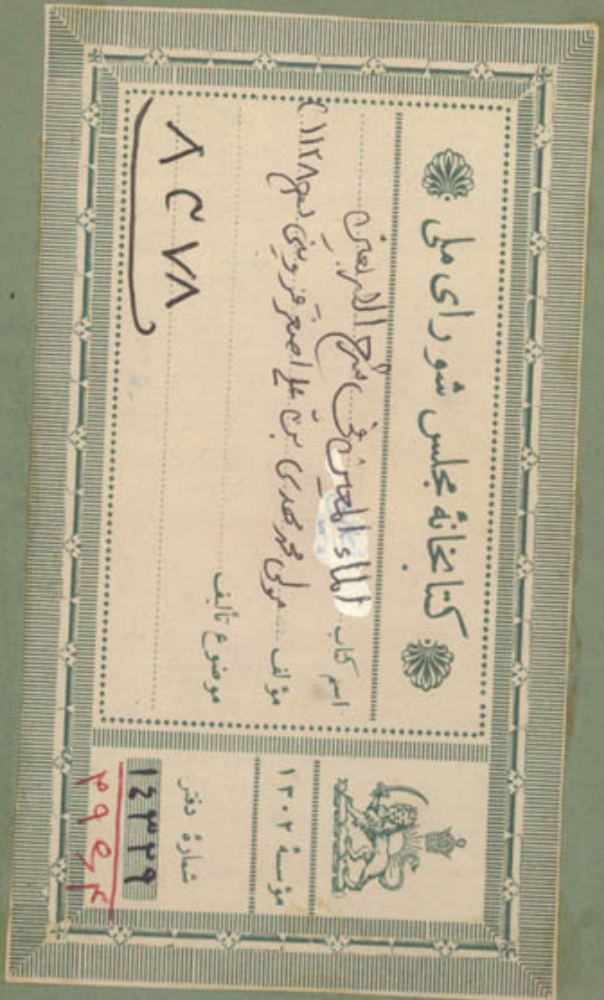 کتابخانهٔ مجلس شورای ملی
اسم کتاب الماء المعین فی شرح الاربعین
مؤلف مولی محمد مهدی بن علی اصغر قزوینی
موضوع تألیف
۸۲۷۸
مؤسسهٔ ۱۳۰۲
شمارهٔ دفتر
۱۴۳۲۹